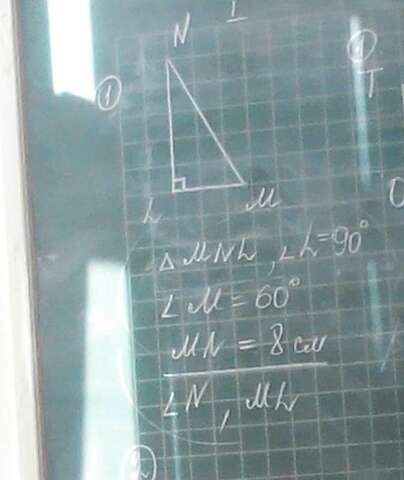 I
①
N
L
M
△ MNL, ∠L=90°
∠M = 60°
MN = 8 см
∠N, ML
②
T